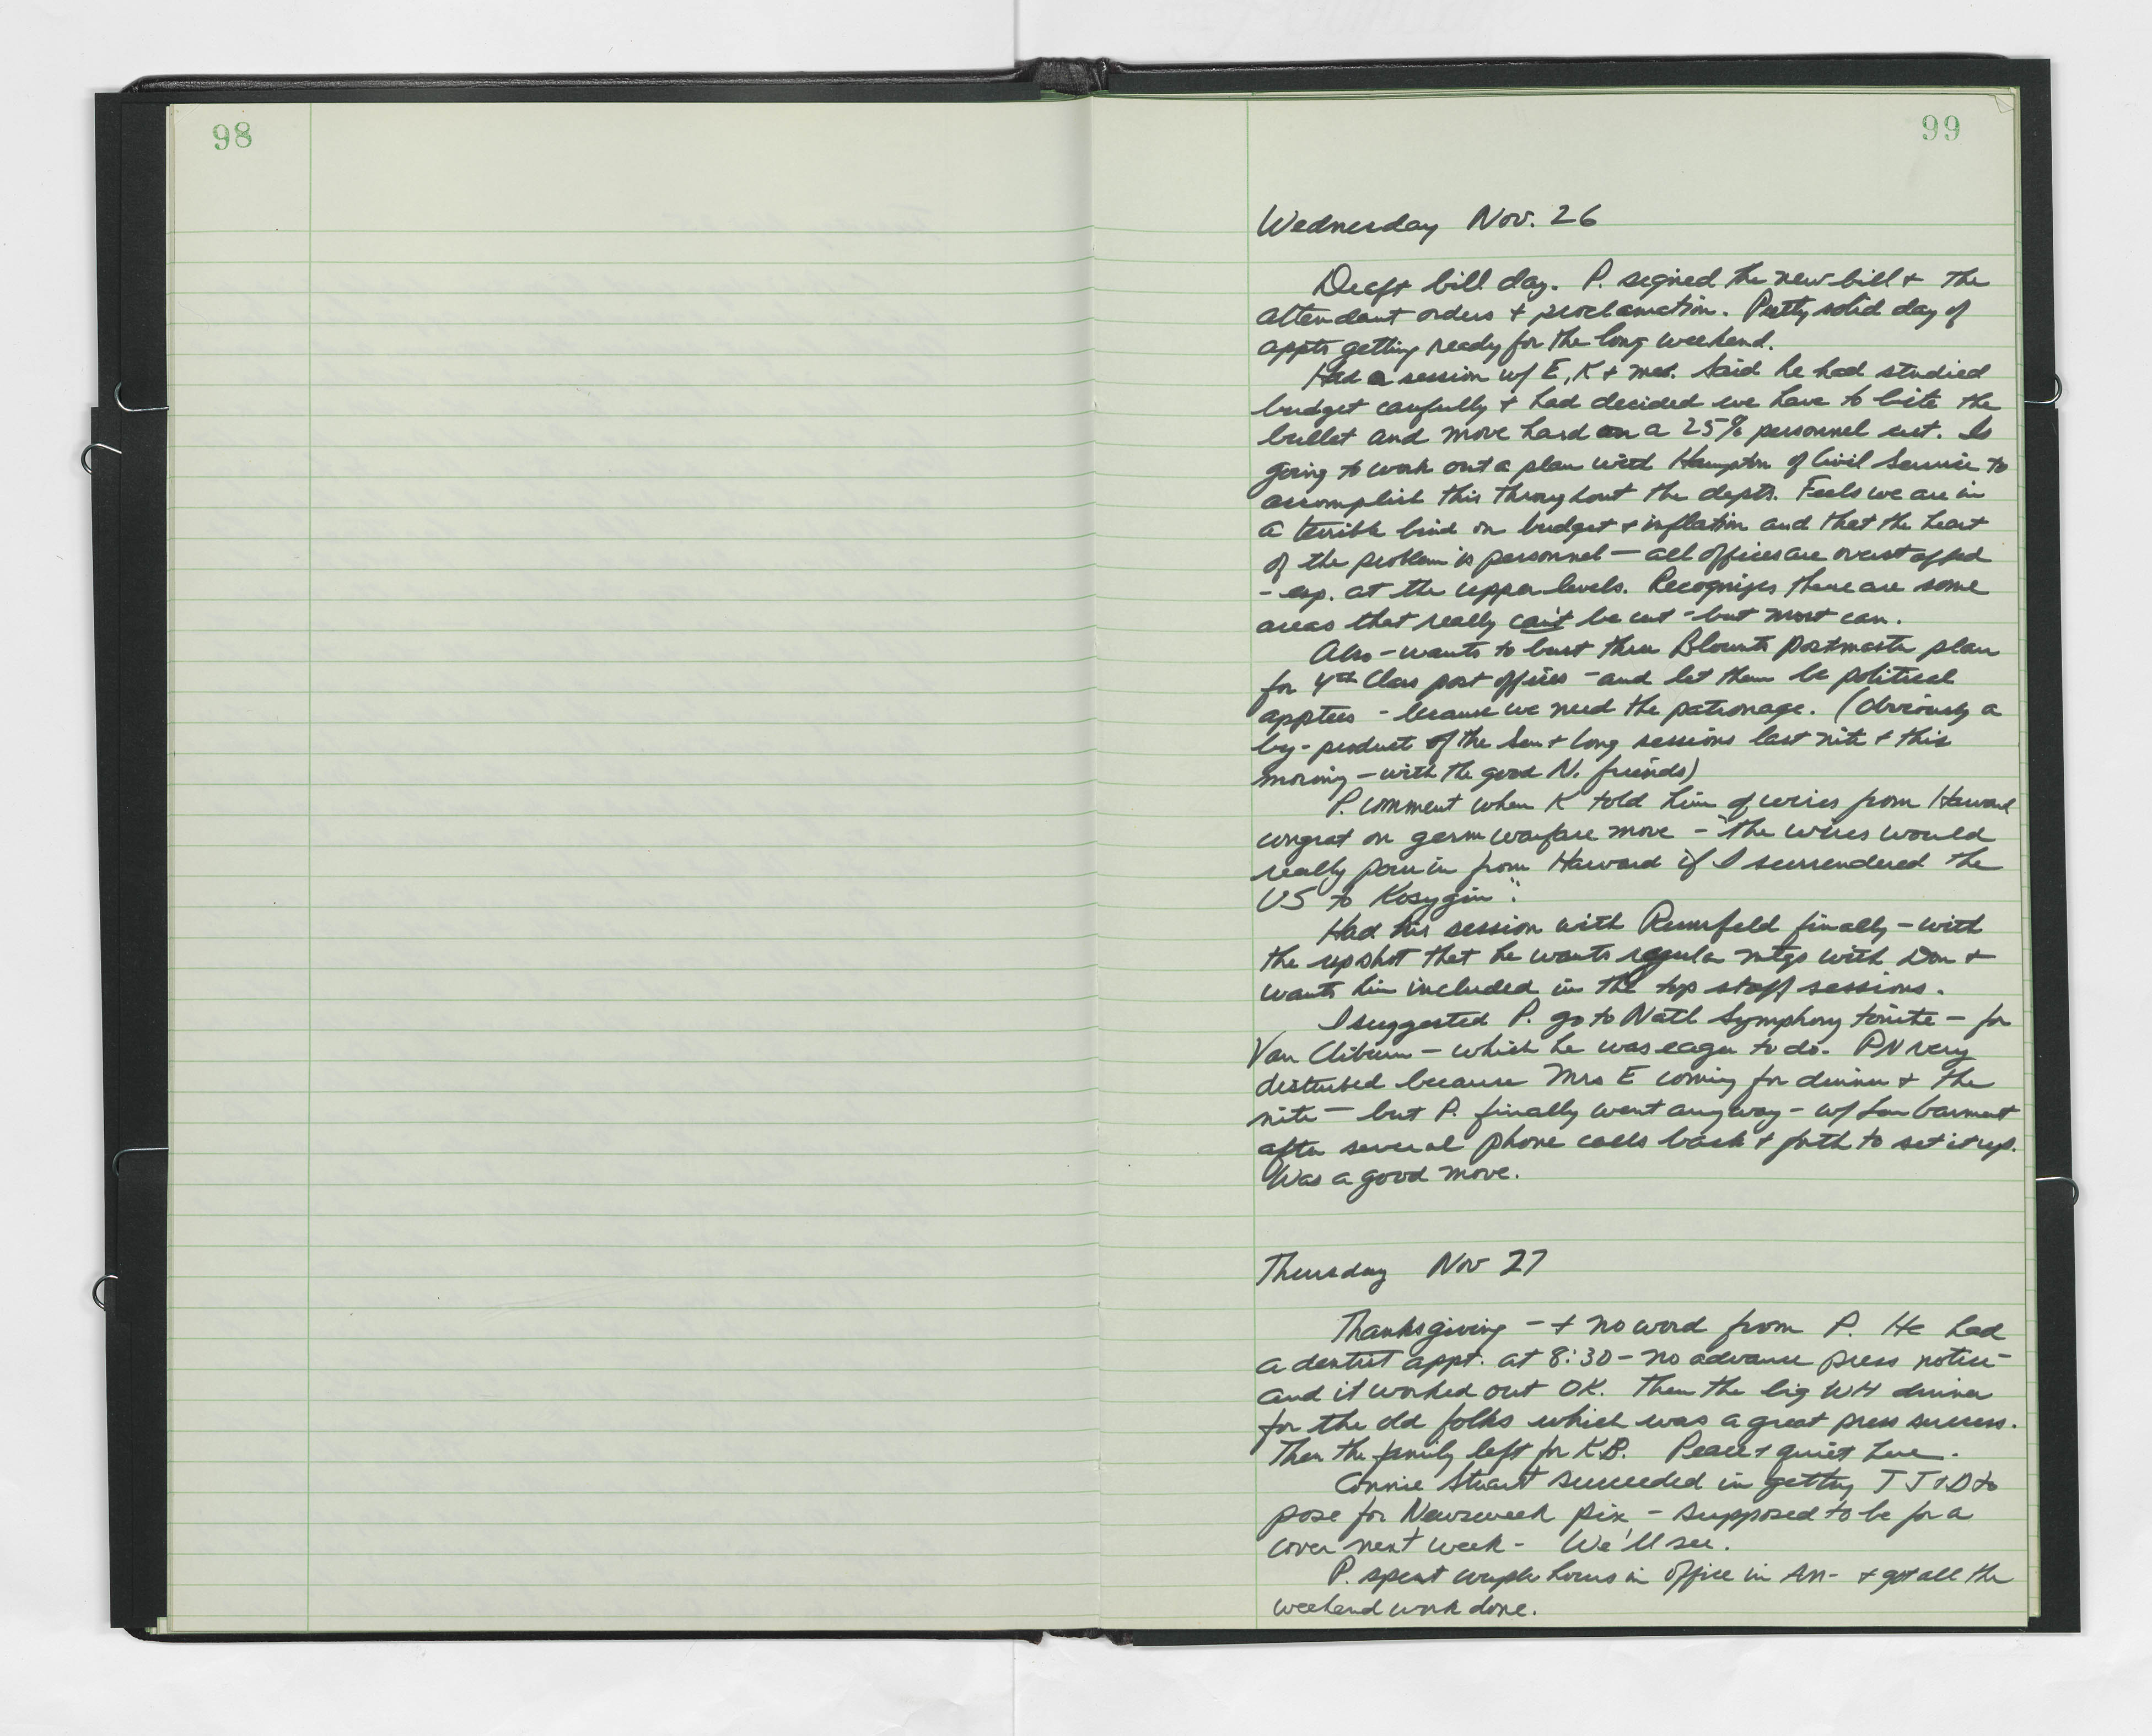 98
99
Wednesday Nov. 26
Draft bill day. P. signed the new bill + the
attendant orders + proclamation. Pretty solid day of
appts getting ready for the long weekend.
Had a session w/ E, K + me. Said he had studied
budget carefully + had decided we have to bite the
bullet and move hard on a 25% personnel cut. Is
going to work out a plan with Hampton of Civil Service to
accomplish this throughout the depts. Feels we are in
a terrible bind on budget + inflation and that the heart
of the problem is personnel — all offices are overstaffed
- esp. at the upper levels. Recognizes there are some
areas that really can't be cut - but most can.
Also - wants to bust thru Blounts postmaster plan
for 4th Class post offices - and let them be political
apptees - because we need the patronage. (Obviously a
by-product of the Sen + Cong sessions last nite + this
morning - with the good N. friends)
P. comment when K told him of wires from Harvard
congrat on germ warfare move - "the wires would
really pour in from Harvard if I surrendered the
US to Kosygin".
Had his session with Rumsfeld finally - with
the upshot that he wants regular mtgs with Don +
wants him included in the top staff sessions.
I suggested P. go to Natl Symphony tonite - for
Van Cliburn - which he was eager to do. PN very
disturbed because Mrs E coming for dinner + the
nite - but P. finally went anyway - w/ Len Garment
after several phone calls back + forth to set it up.
Was a good move.
Thursday Nov 27
Thanksgiving - + no word from P. He had
a dentist appt. at 8:30 - no advance press notice -
and it worked out OK. Then the big WH dinner
for the old folks which was a great press success.
Then the family left for KB. Peace + quiet here.
Connie Stuart succeeded in getting T J + D to
pose for Newsweek pix - supposed to be for a
cover next week - We'll see.
P. spent couple hours in office in AM - + got all the
weekend work done.